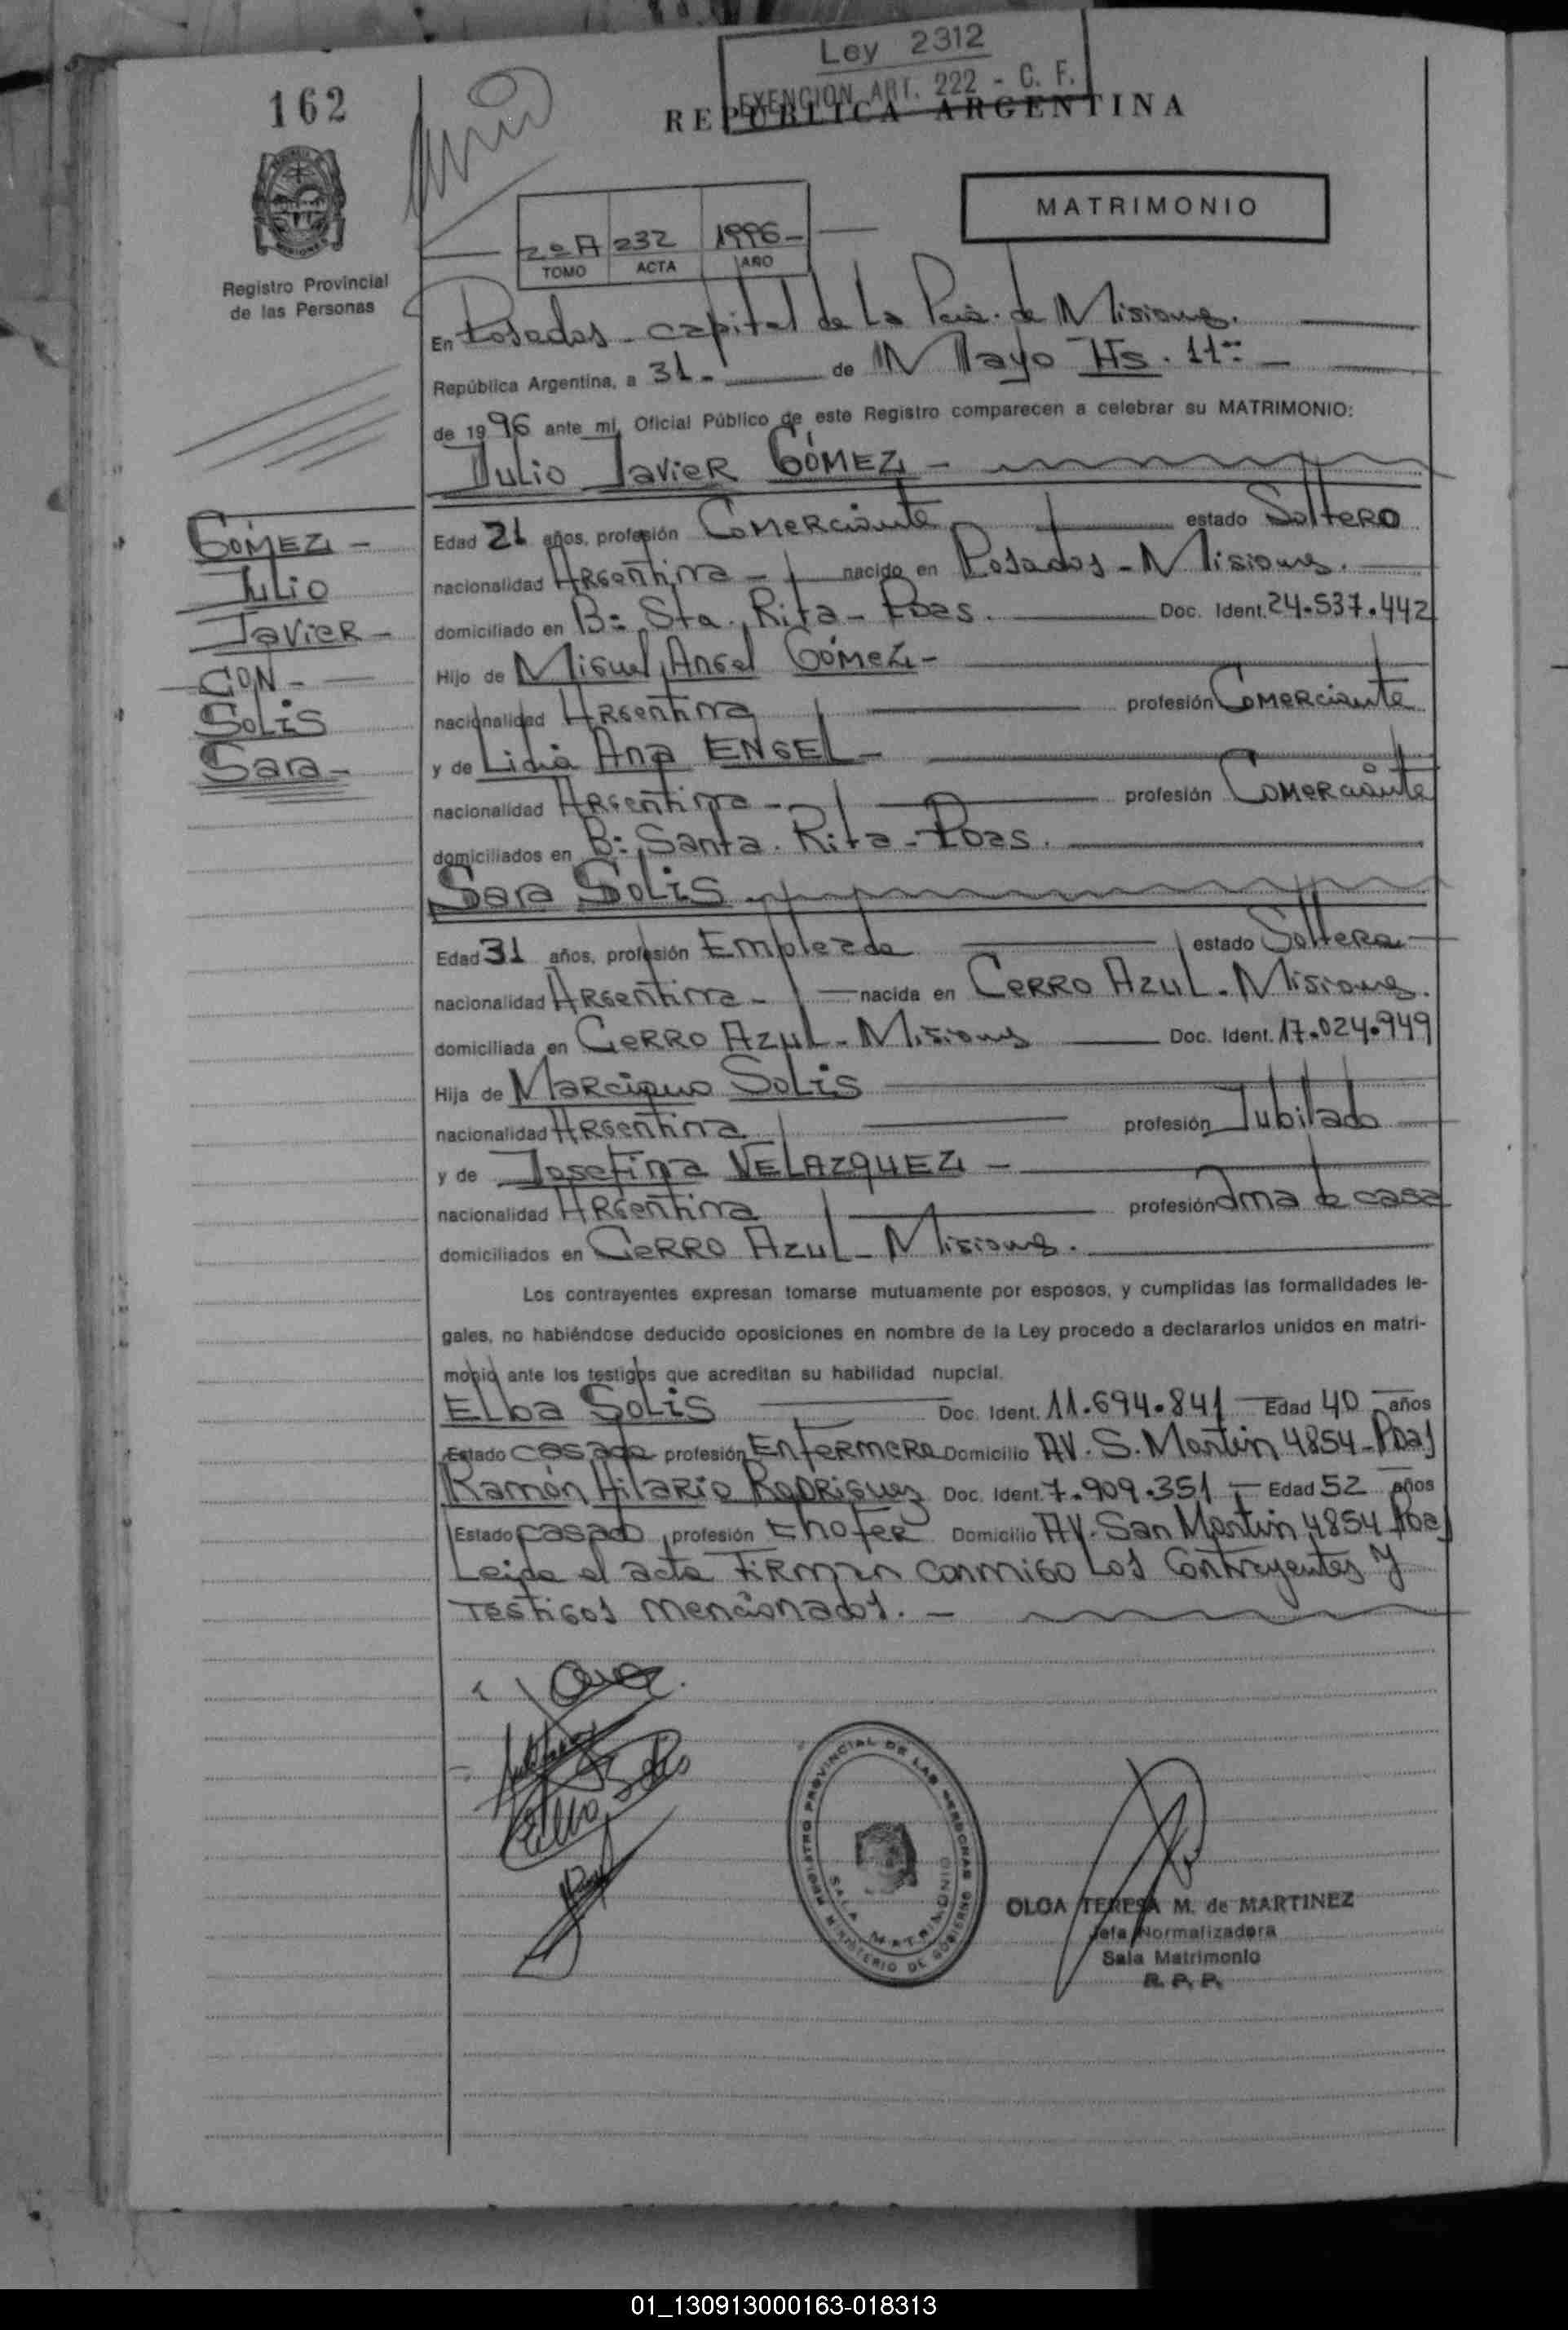 Ley 2312
EXENCION ART. 222 - C. F.
162
REPÚBLICA ARGENTINA
MATRIMONIO
2º A 232 1996-
TOMO ACTA AÑO
Registro Provincial
de las Personas
En Posadas - capital de La Pcia. de Misiones.
República Argentina, a 31.- de Mayo Hs. 11:
de 1996 ante mí, Oficial Público de este Registro comparecen a celebrar su MATRIMONIO:
Julio Javier GÓMEZ -
GÓMEZ -
Julio
Javier -
CON -
SOLIS
Sara -
Edad 21 años, profesión Comerciante estado Soltero
nacionalidad Argentina - nacido en Posadas - Misiones.
domiciliado en Bº Sta. Rita - Pdas. Doc. Ident. 24.537.442
Hijo de Miguel Angel Gómez -
nacionalidad Argentina profesión Comerciante
y de Lidia Ana ENGEL -
nacionalidad Argentina - profesión Comerciante
domiciliados en Bº Santa. Rita - Pdas.
Sara SOLIS
Edad 31 años, profesión Empleada estado Soltera
nacionalidad Argentina - nacida en CERRO AZUL - Misiones.
domiciliada en CERRO AZUL - Misiones Doc. Ident. 17.024.949
Hija de Marciano SOLIS
nacionalidad Argentina profesión Jubilado
y de Josefina VELAZQUEZ -
nacionalidad Argentina profesión Ama de casa
domiciliados en CERRO AZUL - Misiones.
Los contrayentes expresan tomarse mutuamente por esposos, y cumplidas las formalidades le-
gales, no habiéndose deducido oposiciones en nombre de la Ley procedo a declararlos unidos en matri-
monio ante los testigos que acreditan su habilidad nupcial.
Elba SOLIS Doc. Ident. 11.694.841 Edad 40 años
Estado casada profesión Enfermera Domicilio AV. S. Martin 4854 - Pdas
Ramón Hilario Rodriguez Doc. Ident. 7.909.351 - Edad 52 años
Estado casado profesión Chofer Domicilio AV. San Martin 4854 Pdas
Leida el acta Firman conmigo Los Contrayentes y
Testigos mencionados. -
Elba Solis
REGISTRO PROVINCIAL DE LAS PERSONAS
MINISTERIO DE GOBIERNO
SALA MATRIMONIO
OLGA TERESA M. de MARTINEZ
Jefa Normalizadora
Sala Matrimonio
R. P. P.
01_130913000163-018313